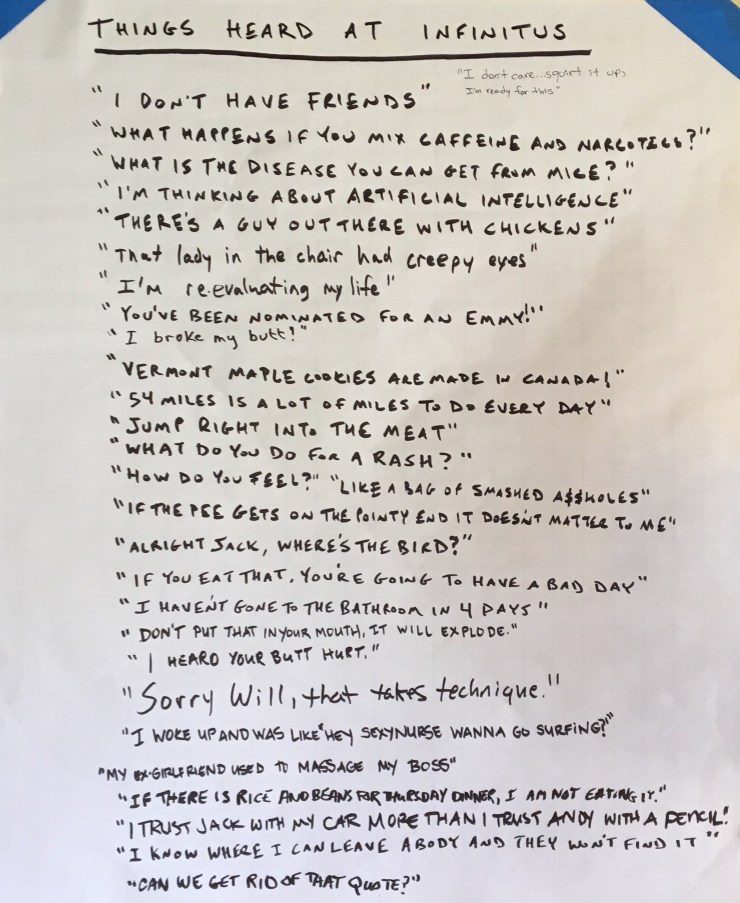 THINGS HEARD AT INFINITUS
"I don't care...squirt it up,
I'm ready for this"
"I DON'T HAVE FRIENDS"
"WHAT HAPPENS IF YOU MIX CAFFEINE AND NARCOTICS?"
"WHAT IS THE DISEASE YOU CAN GET FROM MICE?"
"I'M THINKING ABOUT ARTIFICIAL INTELLIGENCE"
"THERE'S A GUY OUT THERE WITH CHICKENS"
"That lady in the chair had creepy eyes"
"I'M re-evaluating my life"
"YOU'VE BEEN NOMINATED FOR AN EMMY!"
"I broke my butt!"
"VERMONT MAPLE COOKIES ARE MADE IN CANADA!"
"54 MILES IS A LOT OF MILES TO DO EVERY DAY"
"JUMP RIGHT INTO THE MEAT"
"WHAT DO YOU DO FOR A RASH?"
"HOW DO YOU FEEL?" "LIKE A BAG OF SMASHED A$$HOLES"
"IF THE PEE GETS ON THE POINTY END IT DOESN'T MATTER TO ME"
"ALRIGHT JACK, WHERE'S THE BIRD?"
"IF YOU EAT THAT, YOU'RE GOING TO HAVE A BAD DAY"
"I HAVEN'T GONE TO THE BATHROOM IN 4 DAYS"
"DON'T PUT THAT IN YOUR MOUTH, IT WILL EXPLODE."
"I HEARD YOUR BUTT HURT."
"Sorry Will, that takes technique."
"I WOKE UP AND WAS LIKE 'HEY SEXY NURSE WANNA GO SURFING?'"
"MY EX-GIRLFRIEND USED TO MASSAGE MY BOSS"
"IF THERE IS RICE AND BEANS FOR THURSDAY DINNER, I AM NOT EATING IT."
"I TRUST JACK WITH MY CAR MORE THAN I TRUST ANDY WITH A PENCIL!
"I KNOW WHERE I CAN LEAVE A BODY AND THEY WON'T FIND IT"
"CAN WE GET RID OF THAT QUOTE?"